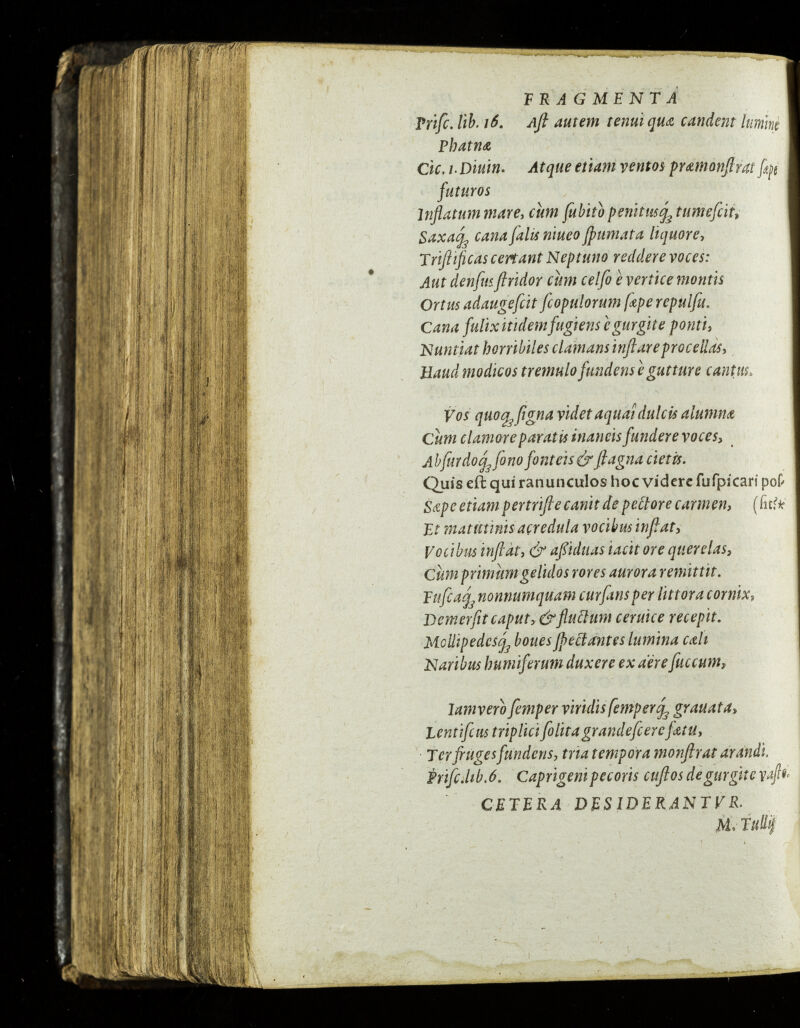 FRAGMENTA
Priſc. lib. 16. Aſt autem tenui quæ candent lumine
Phatnæ
Cic. 1. Diuin. Atque etiam ventos præmonſtrat ſæpe
futuros
Inflatum mare, cùm ſubitò penitusq́; tumeſcit,
Saxaq́; cana ſalis niueo ſpumata liquore,
Triſtificas certant Neptuno reddere voces:
Aut denſus ſtridor cùm celſo è vertice montis
Ortus adaugeſcit ſcopulorum ſæpe repulſu.
Cana fulix itidem fugiens è gurgite ponti,
Nuntiat horribiles clamans inſtare procellas,
Haud modicos tremulo fundens è gutture cantus.
Vos quoq; ſigna videt aquaï dulcis alumnæ
Cùm clamore paratis inaneis fundere voces,
Abſurdoq́; ſono fonteis & ſtagna cietis.
Quis eſt qui ranunculos hoc videre ſuſpicari poſ-
Sæpe etiam pertriſte canit de pectore carmen, (ſit?*
Et matutinis acredula vocibus inſtat,
Vocibus inſtat, & aſſiduas iacit ore querelas,
Cùm primùm gelidos rores aurora remittit.
Fuſcaq́; nonnumquam curſans per littora cornix,
Demerſit caput, & fluctum ceruice recepit.
Mollipedesq́; boues ſpectantes lumina cæli
Naribus humiferum duxere ex aëre ſuccum,
Iamverò ſemper viridis ſemperq́; grauata,
Lentiſcus triplici ſolita grandeſcere fætu,
Ter fruges fundens, tria tempora monſtrat arandi.
Priſc. lib. 6. Caprigeni pecoris cuſtos de gurgite vaſto.
CETERA DESIDERANTVR.
M. Tullij